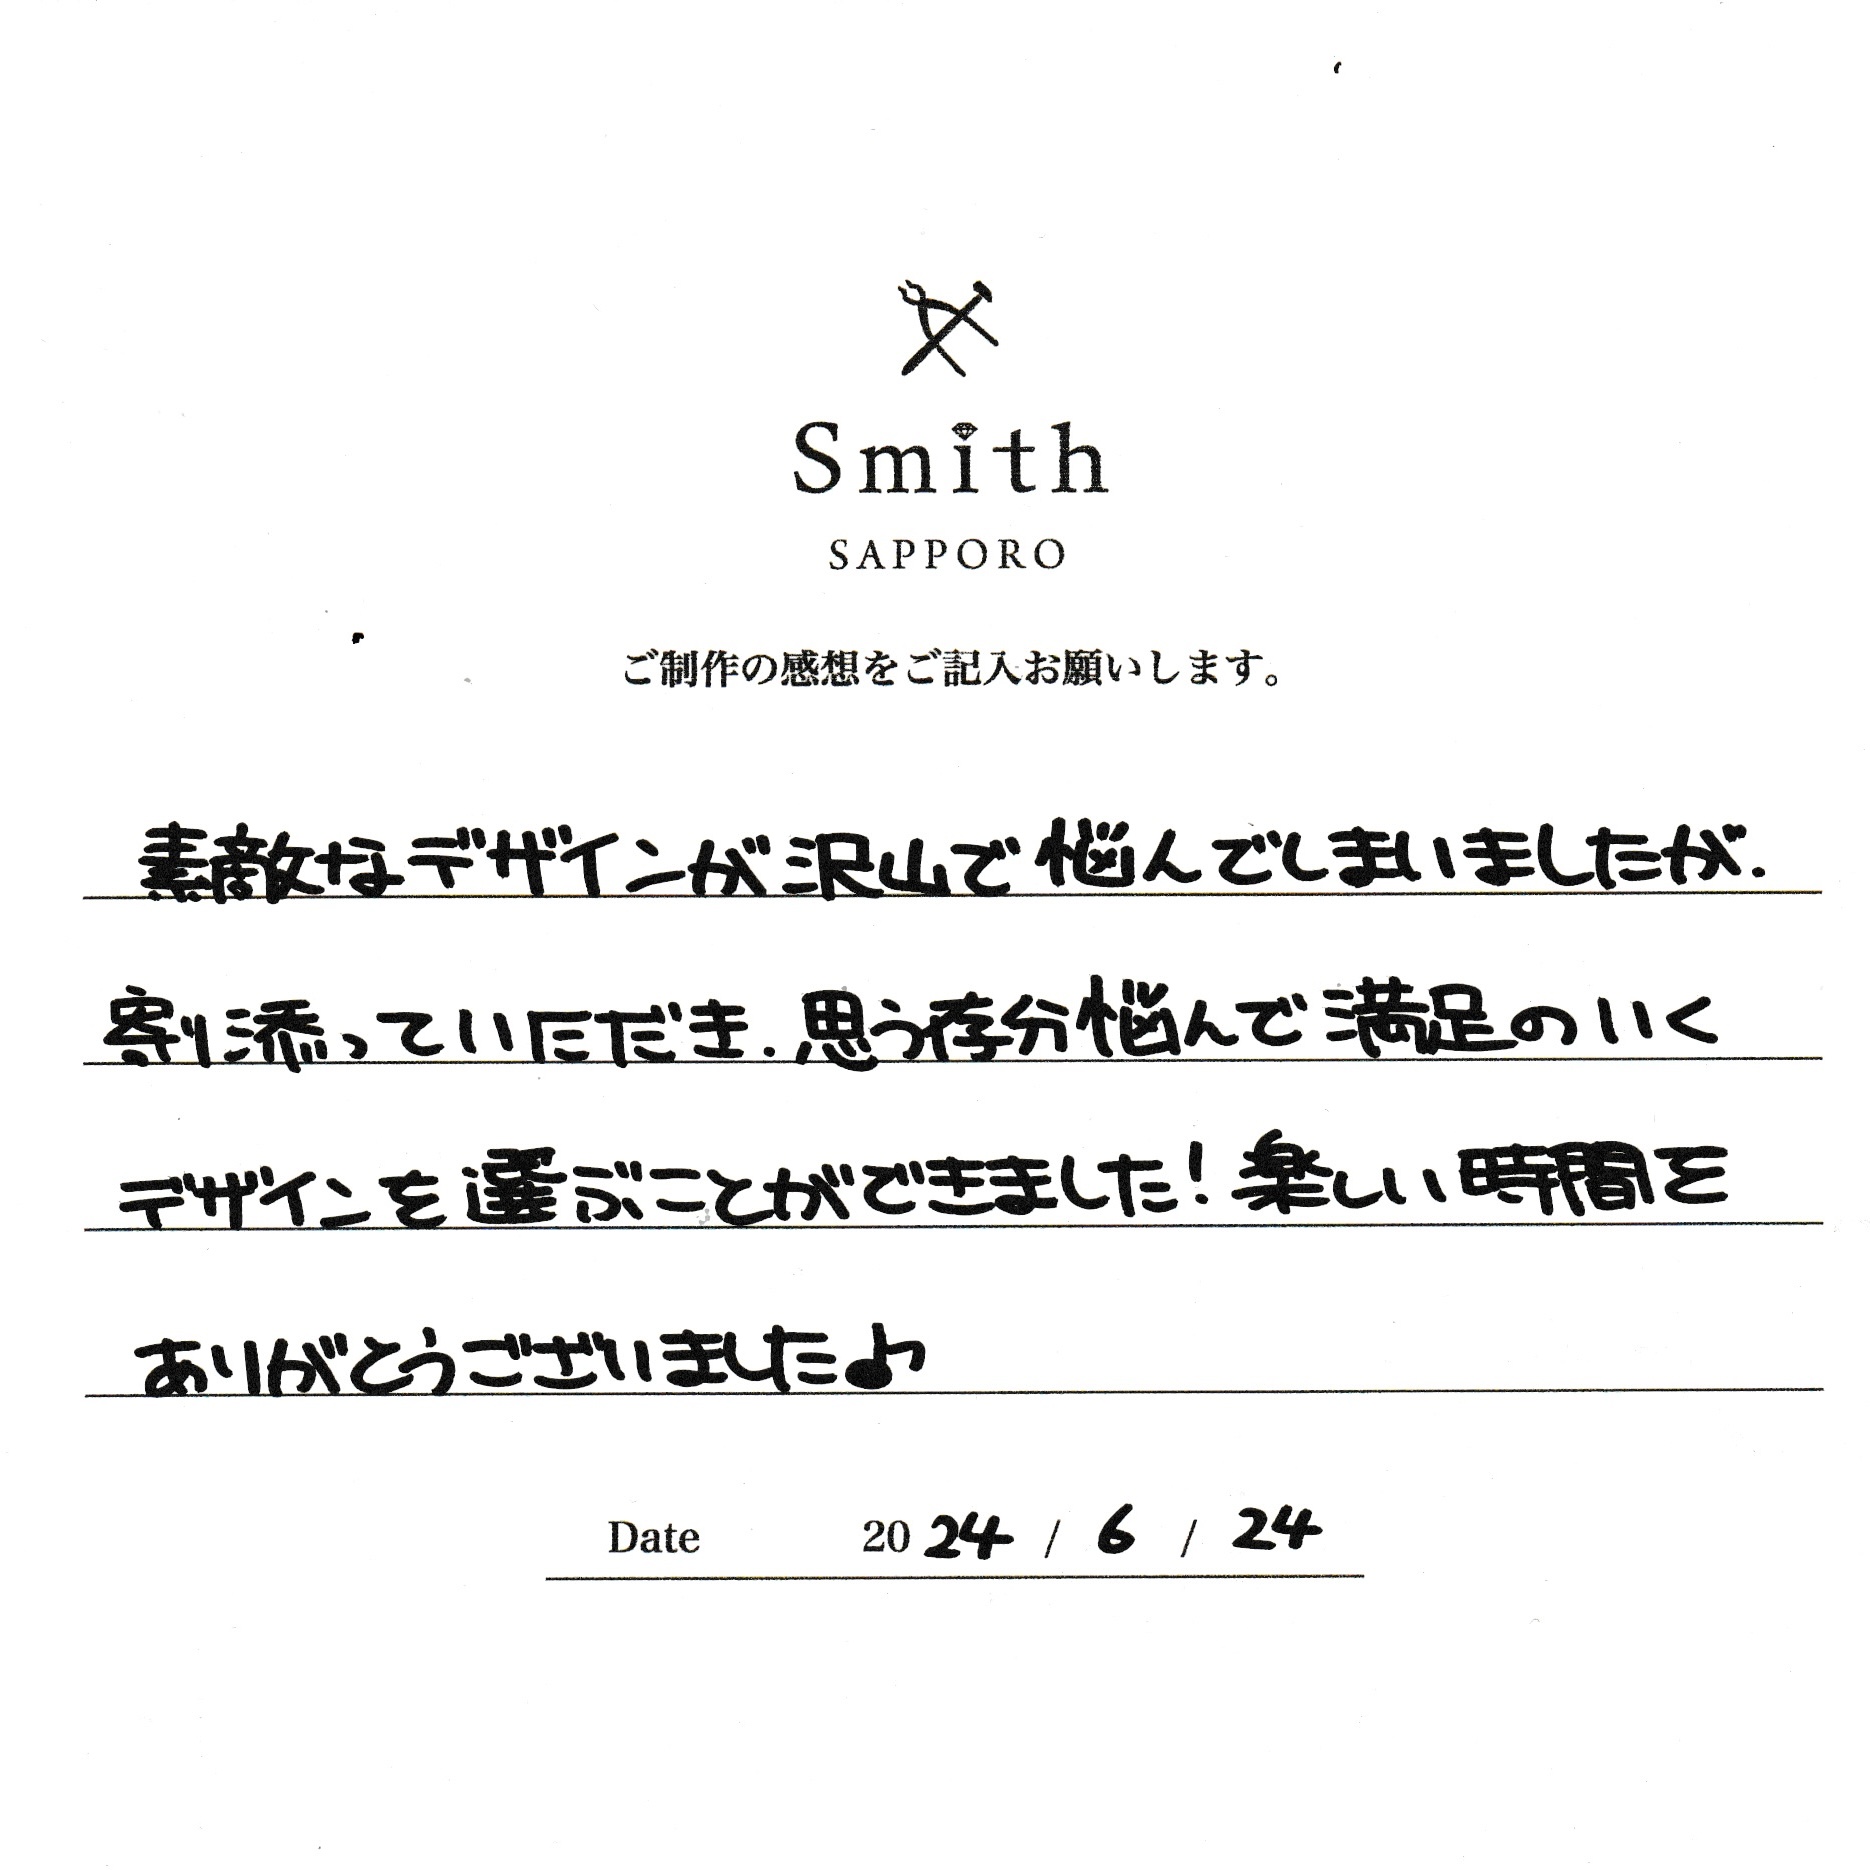 Smith
SAPPORO
ご制作の感想をご記入お願いします。
素敵なデザインが沢山で悩んでしまいましたが.
寄り添っていただき.思う存分悩んで満足のいく
デザインを選ぶことができました!楽しい時間を
ありがとうございました♪
Date 2024 / 6 / 24